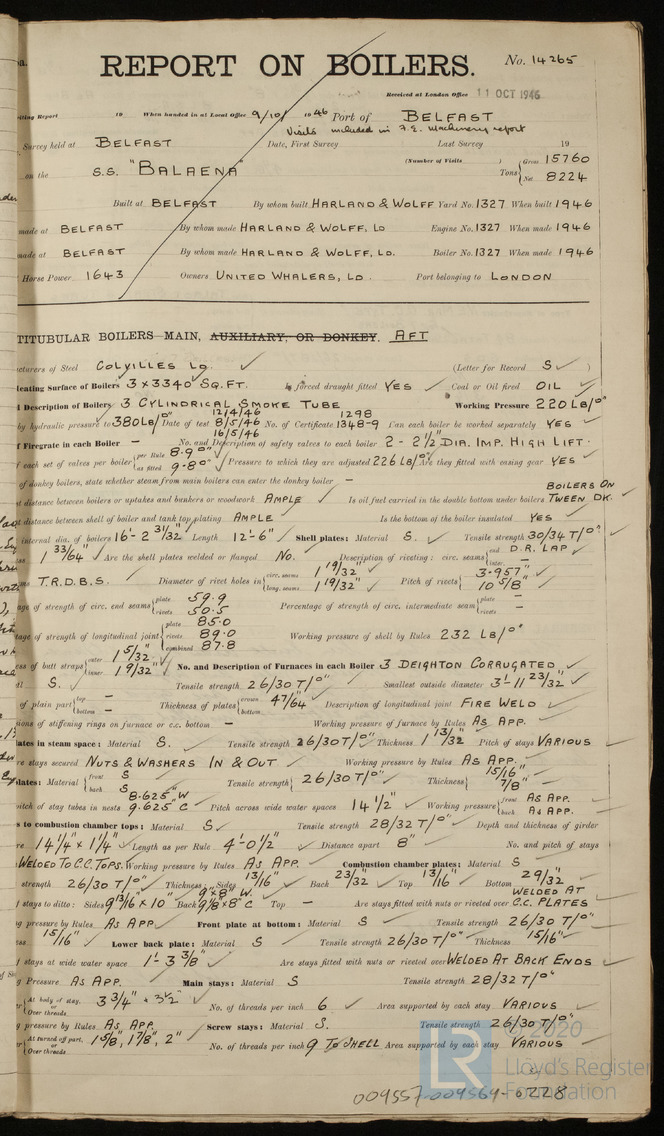 REPORT ON BOILERS.
No. 14265
Received at London Office 11 OCT 1946
19 When handed in at Local Office 9/10/ 1946 Port of BELFAST
Visits included in F.E. Machinery report
Survey held at BELFAST Date, First Survey Last Survey 19
on the S.S. "BALAENA" (Number of Visits ) Tons { Gross 15760 Net 8224
Built at BELFAST By whom built HARLAND & WOLFF Yard No. 1327 When built 1946
made at BELFAST By whom made HARLAND & WOLFF, LD Engine No. 1327 When made 1946
made at BELFAST By whom made HARLAND & WOLFF, LD. Boiler No. 1327 When made 1946
Horse Power 1643 Owners UNITED WHALERS, LD. Port belonging to LONDON
TITUBULAR BOILERS MAIN, AUXILIARY, OR DONKEY. AFT
cturers of Steel COLVILLES LD. (Letter for Record S )
Heating Surface of Boilers 3 x 3340 SQ.FT. Is forced draught fitted YES Coal or Oil fired OIL
d Description of Boilers 3 CYLINDRICAL SMOKE TUBE Working Pressure 220 LB/□"
by hydraulic pressure to 380 LB/□" Date of test 12/4/46 8/5/46 16/5/46 No. of Certificate 1298 1348-9 Can each boiler be worked separately YES
f Firegrate in each Boiler – No. and Description of safety valves to each boiler 2 - 2½" DIA. IMP. HIGH LIFT.
f each set of valves per boiler { per Rule 8.9□" as fitted 9.8□" Pressure to which they are adjusted 226 LB/□" Are they fitted with easing gear YES
of donkey boilers, state whether steam from main boilers can enter the donkey boiler –
st distance between boilers or uptakes and bunkers or woodwork AMPLE Is oil fuel carried in the double bottom under boilers BOILERS ON TWEEN DK.
st distance between shell of boiler and tank top plating AMPLE Is the bottom of the boiler insulated YES
internal dia. of boilers 16'-2 31/32" Length 12'-6" Shell plates: Material S. Tensile strength 30/34 T/□"
1 33/64" Are the shell plates welded or flanged NO. Description of riveting: circ. seams { end D.R. LAP inter. –
ms T.R.D.B.S. Diameter of rivet holes in { circ. seams 1 19/32" long. seams 1 19/32" Pitch of rivets { 3.957" 10 5/8"
age of strength of circ. end seams { plate 59.9 rivets 50.5 Percentage of strength of circ. intermediate seam { plate – rivets –
tage of strength of longitudinal joint { plate 85.0 rivets 89.0 combined 87.8 Working pressure of shell by Rules 232 LB/□"
ess of butt straps { outer 1 5/32" inner 1 9/32" No. and Description of Furnaces in each Boiler 3 DEIGHTON CORRUGATED
al S. Tensile strength 26/30 T/□" Smallest outside diameter 3'-11 23/32"
of plain part { top – bottom – Thickness of plates { crown 47/64" bottom Description of longitudinal joint FIRE WELD
ions of stiffening rings on furnace or c.c. bottom – Working pressure of furnace by Rules AS APP.
lates in steam space: Material S. Tensile strength 26/30 T/□" Thickness 1 13/32" Pitch of stays VARIOUS
re stays secured NUTS & WASHERS IN & OUT Working pressure by Rules AS APP.
plates: Material { front S back S Tensile strength { 26/30 T/□" Thickness { 15/16" 7/8"
pitch of stay tubes in nests 8.625" W 9.625" C Pitch across wide water spaces 14½" Working pressure { front AS APP. back AS APP.
s to combustion chamber tops: Material S Tensile strength 28/32 T/□" Depth and thickness of girder
re 14¼" x 1¼" Length as per Rule 4'-0½" Distance apart 8" No. and pitch of stays
WELDED TO C.C. TOPS. Working pressure by Rules AS APP. Combustion chamber plates: Material S
strength 26/30 T/□" Thickness: Sides 13/16" Back 23/32" Top 13/16" Bottom 29/32"
stays to ditto: Sides 9 13/16" x 10" Back 9" x 8" W. 9 1/8" x 8" C Top – Are stays fitted with nuts or riveted over WELDED AT C.C. PLATES
g pressure by Rules AS APP. Front plate at bottom: Material S Tensile strength 26/30 T/□"
ess 15/16" Lower back plate: Material S Tensile strength 26/30 T/□" Thickness 15/16"
f stays at wide water space 1'-3 3/8" Are stays fitted with nuts or riveted over WELDED AT BACK ENDS
g Pressure AS APP. Main stays: Material S Tensile strength 28/32 T/□"
{ At body of stay, or Over threads. 3¾" & 3½" No. of threads per inch 6 Area supported by each stay VARIOUS
g pressure by Rules AS APP. Screw stays: Material S. Tensile strength 26/30 T/□"
{ At turned off part, or Over threads. 1 5/8", 1 7/8", 2" No. of threads per inch 9 TO SHELL Area supported by each stay VARIOUS
© 2020
LR Lloyd's Register Foundation
009557-009564-0228